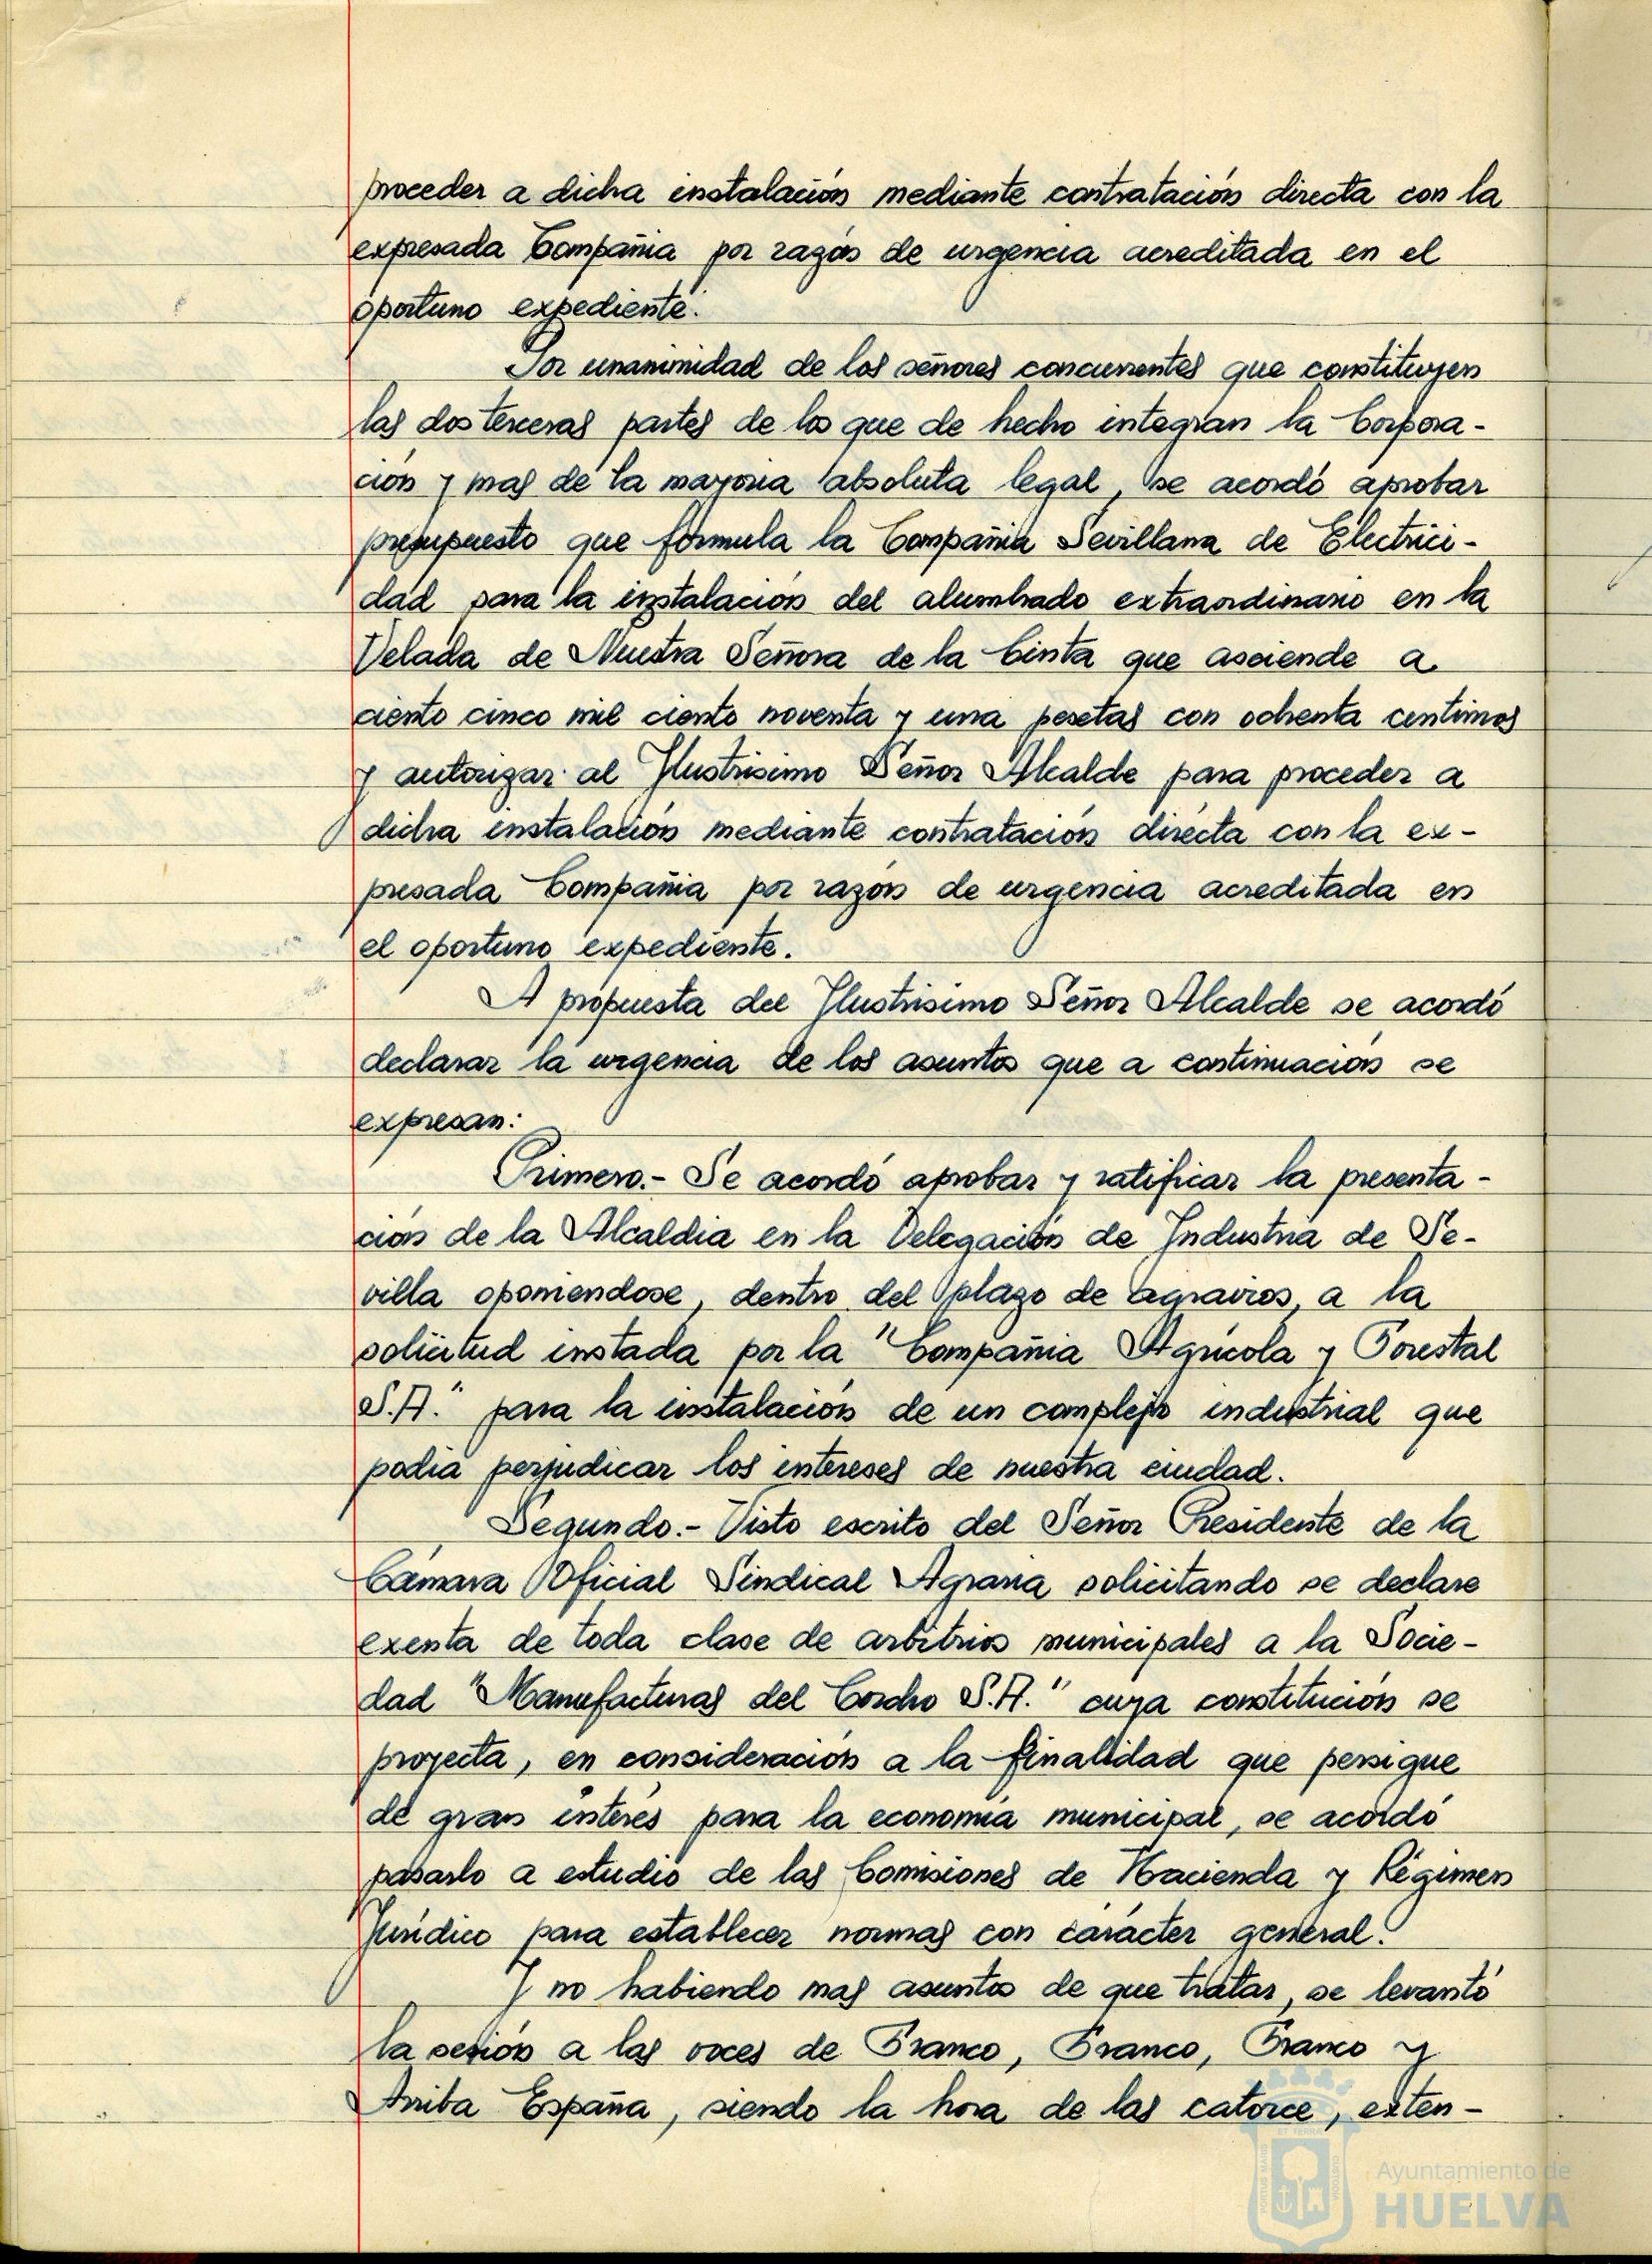 proceder a dicha instalación mediante contratación directa con la
expresada Compañia por razón de urgencia acreditada en el
oportuno expediente.
Por unanimidad de los señores concurrentes que constituyen
las dos terceras partes de los que de hecho integran la Corpora-
ción y mas de la mayoria absoluta legal, se acordó aprobar
presupuesto que formula la Compañia Sevillana de Electrici-
dad para la instalación del alumbrado extraordinario en la
Velada de Nuestra Señora de la Cinta que asciende a
ciento cinco mil ciento noventa y una pesetas con ochenta centimos
y autorizar al Ilustrisimo Señor Alcalde para proceder a
dicha instalación mediante contratación directa con la ex-
presada Compañia por razón de urgencia acreditada en
el oportuno expediente.
A propuesta del Ilustrisimo Señor Alcalde se acordó
declarar la urgencia de los asuntos que a continuación se
expresan:
Primero.- Se acordó aprobar y ratificar la presenta-
ción de la Alcaldia en la Delegación de Industria de Se-
villa oponiendose, dentro del plazo de agravios, a la
solicitud instada por la "Compañia Agrícola y Forestal
S.A." para la instalación de un complejo industrial que
podia perjudicar los intereses de nuestra ciudad.
Segundo.- Visto escrito del Señor Presidente de la
Cámara Oficial Sindical Agraria solicitando se declare
exenta de toda clase de arbitrios municipales a la Socie-
dad "Manufacturas del Corcho S.A." cuya constitución se
proyecta, en consideración a la finalidad que persigue
de gran interés para la economía municipal, se acordó
pasarlo a estudio de las Comisiones de Hacienda y Régimen
Jurídico para establecer normas con carácter general.
Y no habiendo mas asuntos de que tratar, se levantó
la sesión a las voces de Franco, Franco, Franco y
Arriba España, siendo la hora de las catorce, exten-
Ayuntamiento de
HUELVA